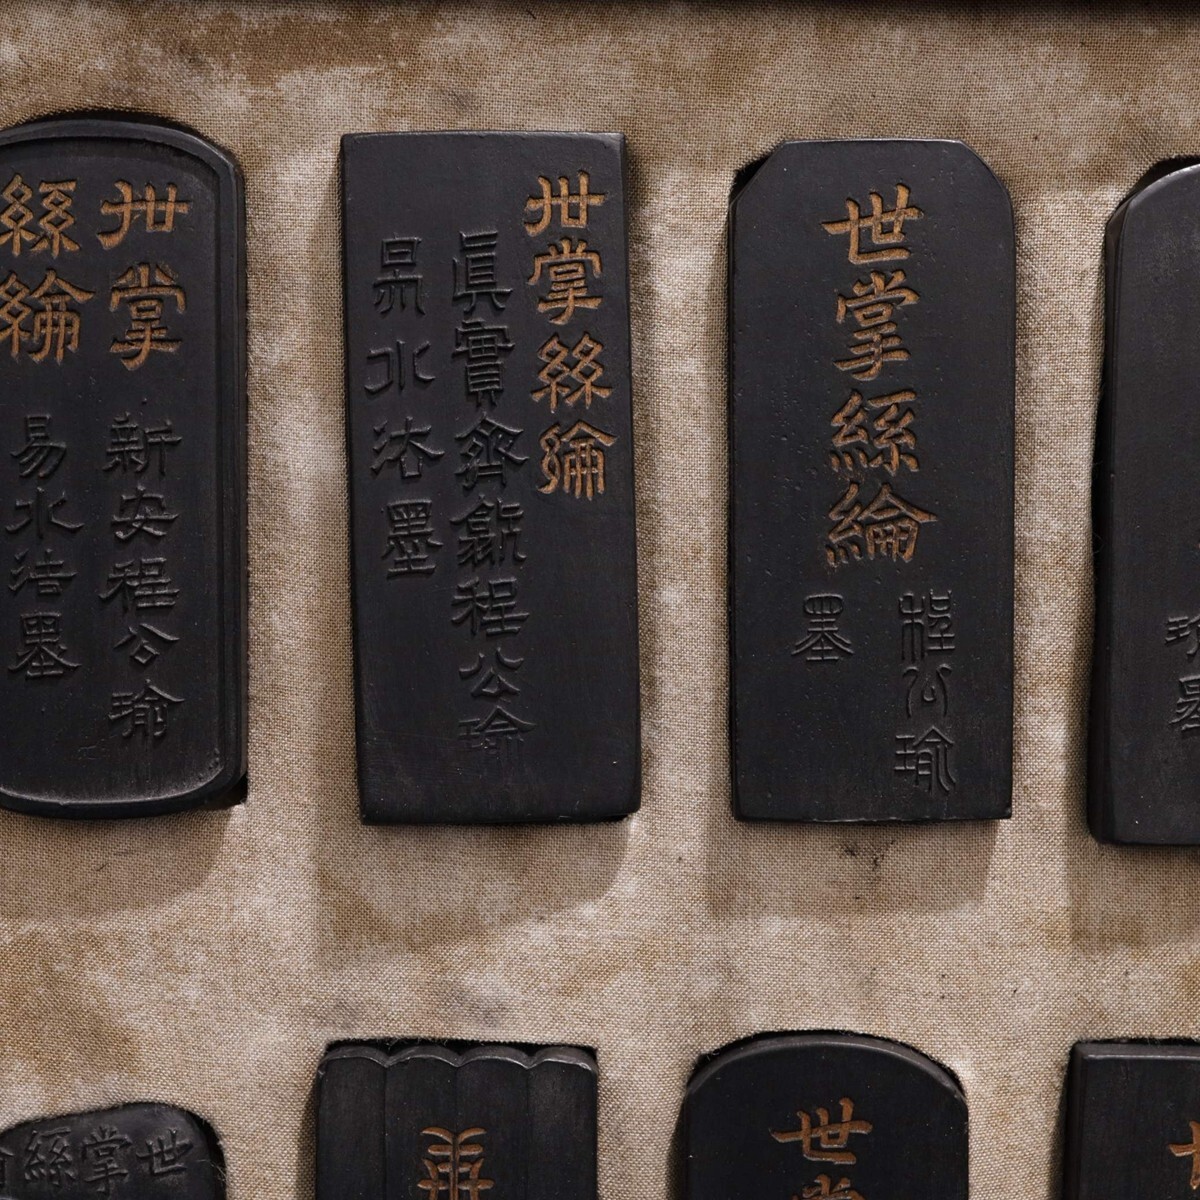 世掌
絲綸
新安程公瑜
易水法墨
世掌絲綸
真實齋
程公瑜
易水法墨
世掌絲綸
程公瑜
墨
墨
世掌絲
世掌